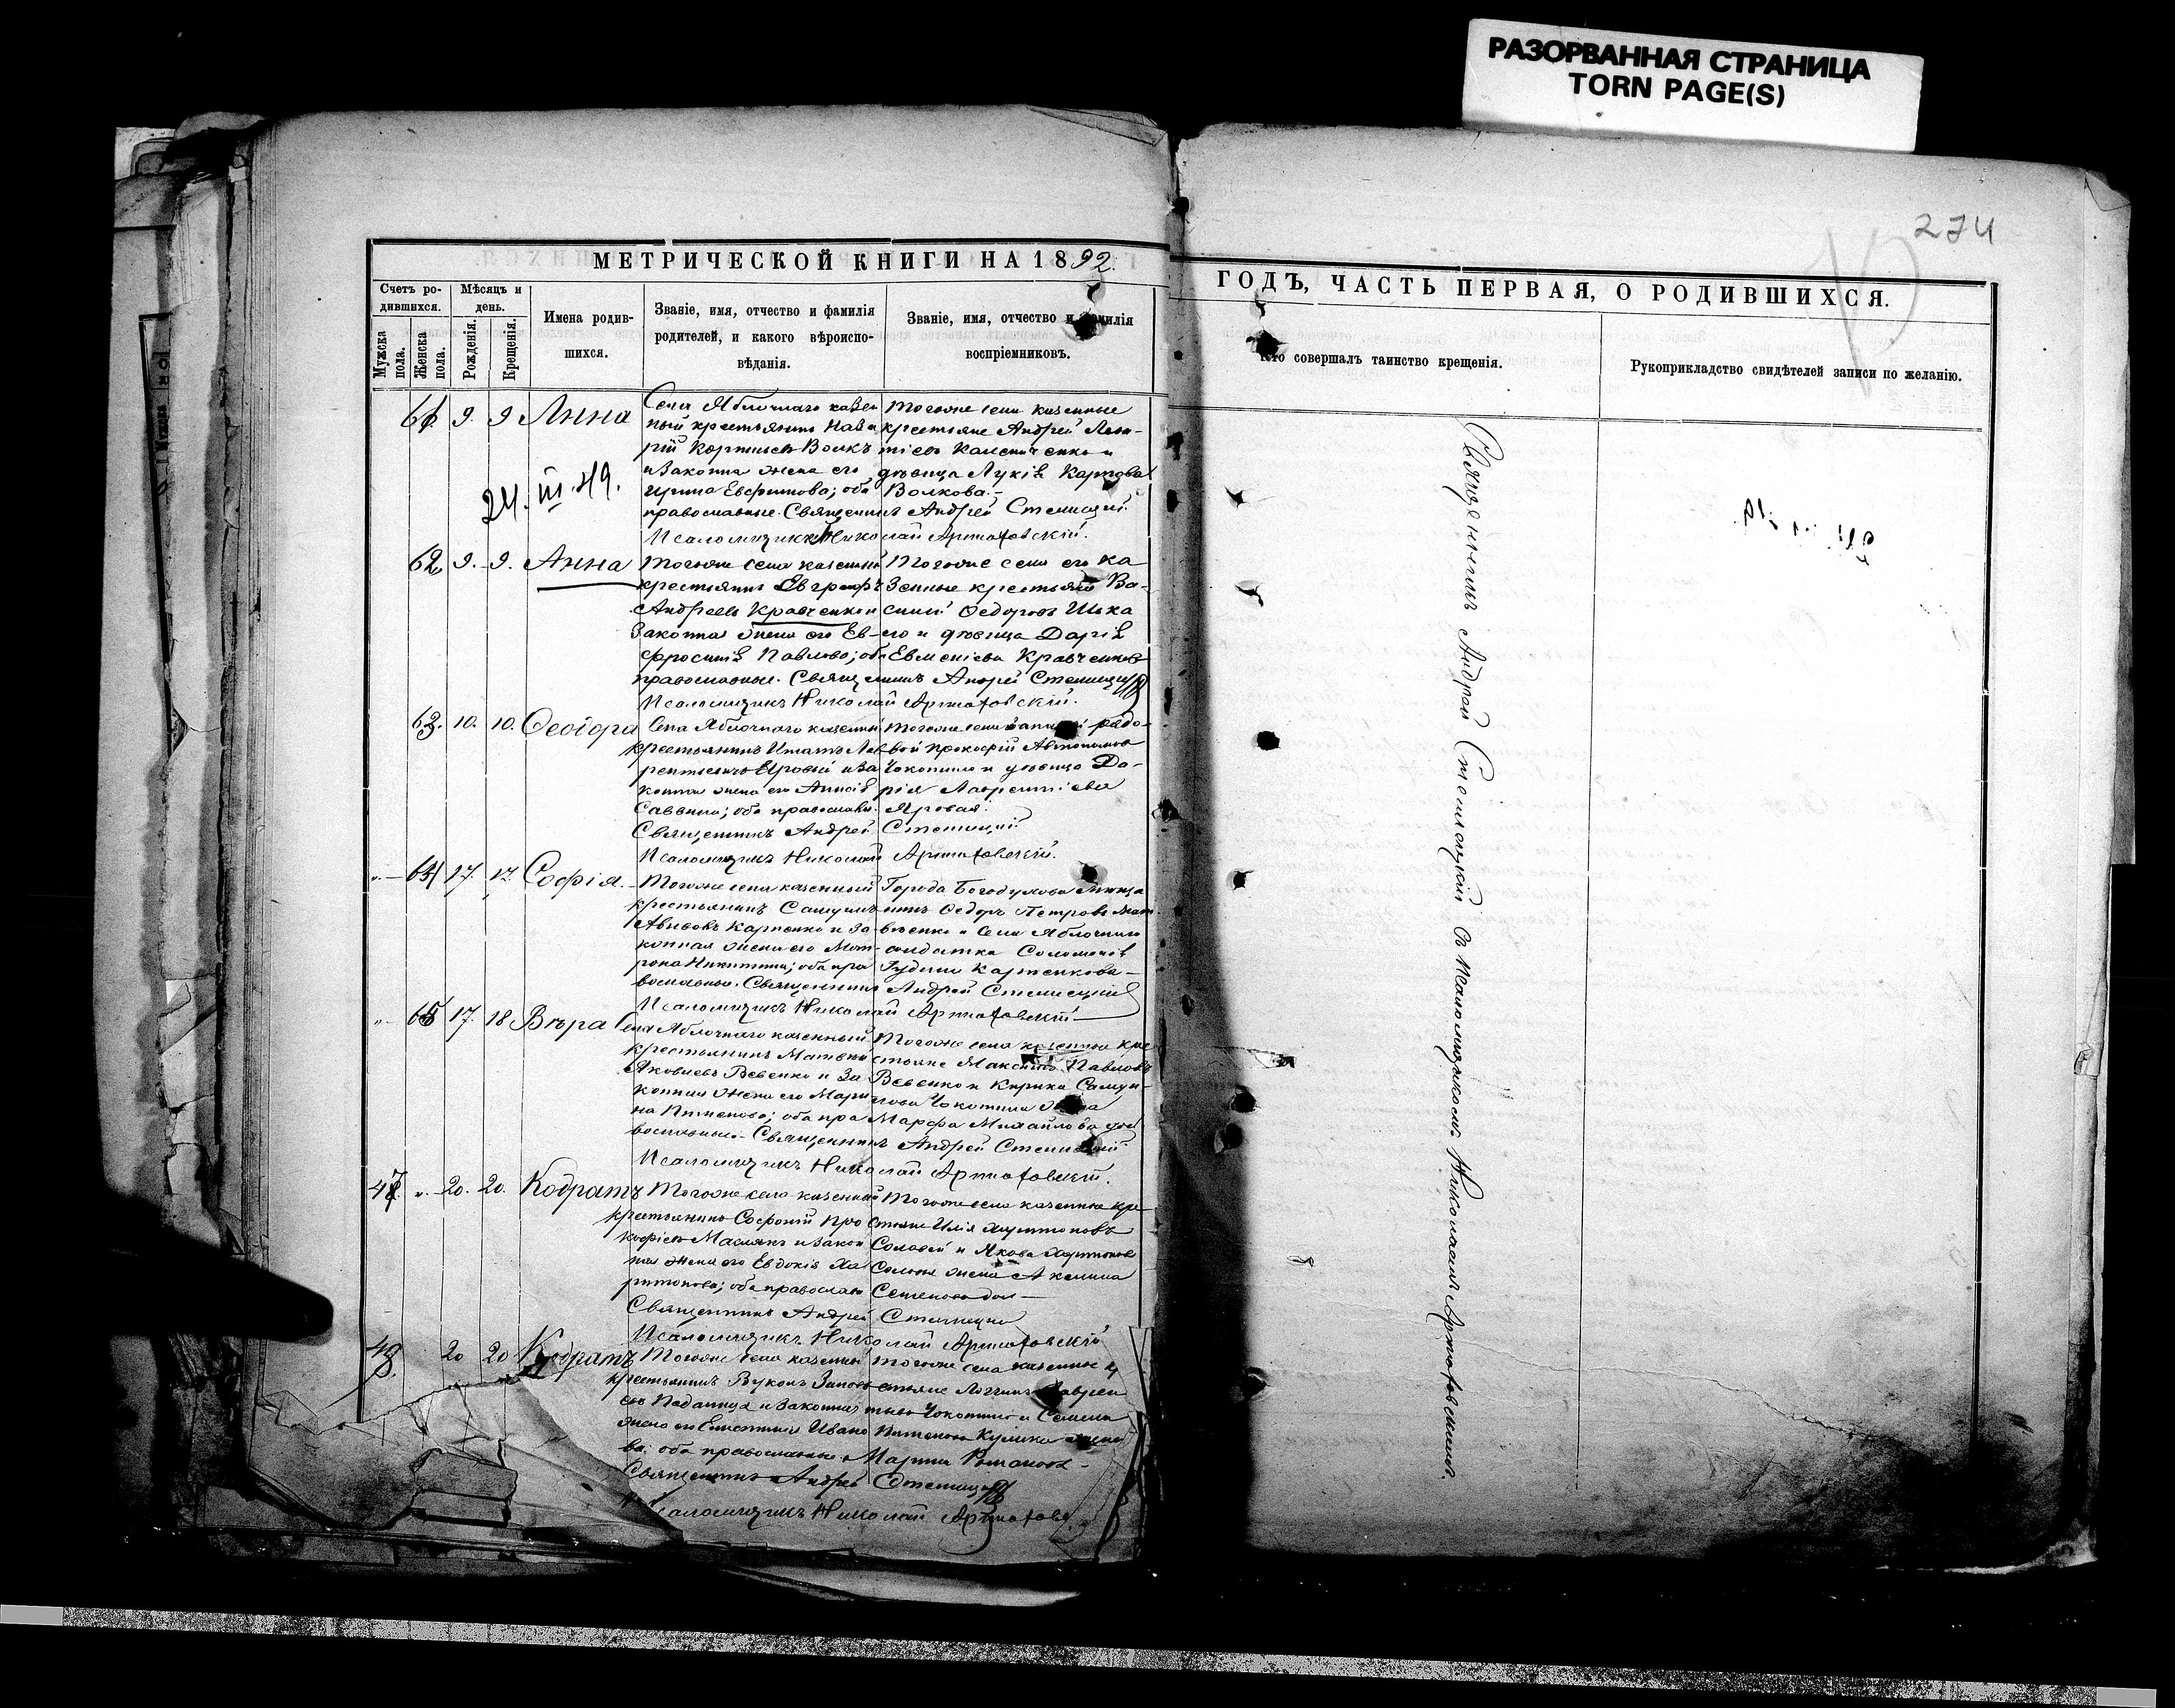 РАЗОРВАННАЯ СТРАНИЦА
TORN PAGE(S)
274
МЕТРИЧЕСКОЙ КНИГИ НА 1892.
ГОДЪ, ЧАСТЬ ПЕРВАЯ, О РОДИВШИХСЯ.
Счетъ ро-
дившихся.
Мужска
пола.
Женска
пола.
Мѣсяцъ и
день.
Рожденія.
Крещенія.
Имена родив-
шихся.
Званіе, имя, отчество и фамилія
родителей, и какого вѣроиспо-
вѣданія.
Званіе, имя, отчество и фамилія
воспріемниковъ.
Кто совершалъ таинство крещенія.
Рукоприкладство свидѣтелей записи по желанію.
61. 9. 9 Анна
Села Яблочнаго казен
ный крестьянинъ
Волкъ
и законна жена его
Ирина Евфимова; оба
православные. Священникъ Андрей Стеллецкій
Псаломщикъ Николай Артюховскій.
тогоже села казенные
крестьяне Андрей
дѣвица Лукія Карпова
Волкова.-
24. III. 49.
62. 9. 9. Анна
тогоже села казенный
крестьянинъ Евграфъ
Андреевъ Кравченко и
законная жена его Ев-
фросинія Павлова; оба
православные. Священникъ Андрей Стеллецкій
Псаломщикъ Николай Артюховскій.
тогоже села ка
зенные крестьяне Ва-
силій Ѳедоровъ
и дѣвица Дарія
Евменіева Кравченкова
63. 10. 10. Ѳеодора
Села Яблочнаго казенный
крестьянинъ
Яровый и за
конная жена его Анисія
Саввина; оба православн.
Священникъ Андрей Стеллецкій
Псаломщикъ Николай Артюховскій.
Прокофій Автономовъ
и дѣвица Да-
рія Лаврентіева
Яровая.
64 17. 17. Софія.
тогоже села казенный
крестьянинъ Самуилъ
Карпенко и за-
конная жена его Мат-
рона Никитина; оба пра
вославные. Священникъ Андрей Стеллецкій
Псаломщикъ Николай Артюховскій
Города Богодухова мѣща
нинъ Ѳедоръ Петровъ
и села Яблочнаго
солдатка Соломонія
Карпенкова-
65 17. 18 Вѣра
Села Яблочнаго казенный
крестьянинъ Матвѣй
Яковлевъ Вевенко и за
конная жена его Мари
на Пименова; оба пра
вославные.- Священникъ Андрей Стеллецкій
Псаломщикъ Николай Артюховскій.
тогоже села казенные кре
стьяне Максимъ Павловъ
Вевенко и Кирика Самуи-
лова Чокотина жена
Марфа Михайлова
47. 20. 20. Кодратъ
тогоже села казенный
крестьянинъ Софроній Про
кофіевъ Маслякъ и закон
ная жена его Евдокія Ха
ритонова; оба православн
Священникъ Андрей Стеллецкій
Псаломщикъ Николай Артюховскій
тогоже села казенные кре
стьяне Илія Харитоновъ
Соловей и Якова Харитонова
жена Акилина
Семенова
48. 20 20 Кодратъ
тогоже села казенный
крестьянинъ Вуколъ
и законная
жена его Ивано
ва; оба православные.
Священникъ Андрей Стеллецкій
Псаломщикъ Николай Артюховс
тогоже села казенные к
и Семена
Пименова Кулика жена
Марина Романова-
Священникъ Андрей Стеллецкій съ псаломщикомъ Николаемъ Артюховскимъ.